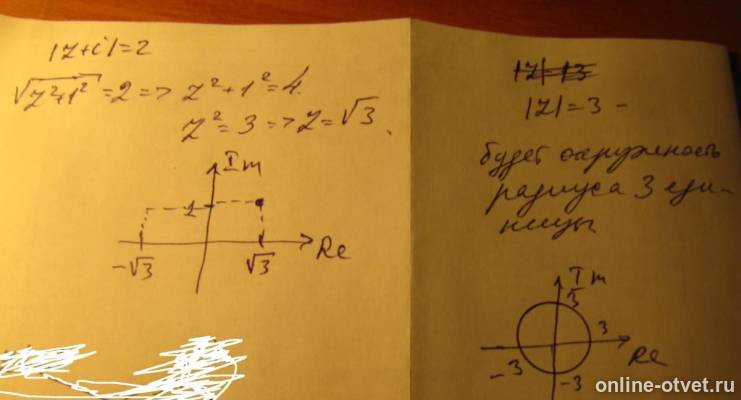 |z+i|=2
√z²+1² =2 => z²+1²=4.
z²=3 => z=√3.
Im
1
-√3 √3 Re
|z|=13
|z|=3 -
будет окружность
радиуса 3 еди-
ницы
Im
3
3
-3 Re
-3
online-otvet.ru